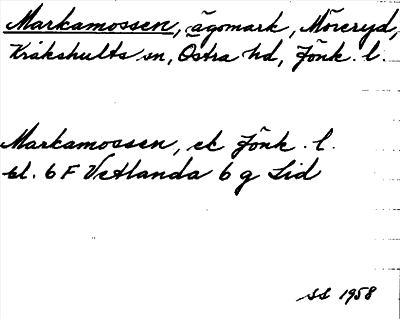 Markamossen, ägomark, Möreryd,
Kråkshults sn, Östra hd, Jönk. l.
Markamossen, ek Jönk. l.
bl. 6 F Vetlanda 6 g Lid
SS 1958